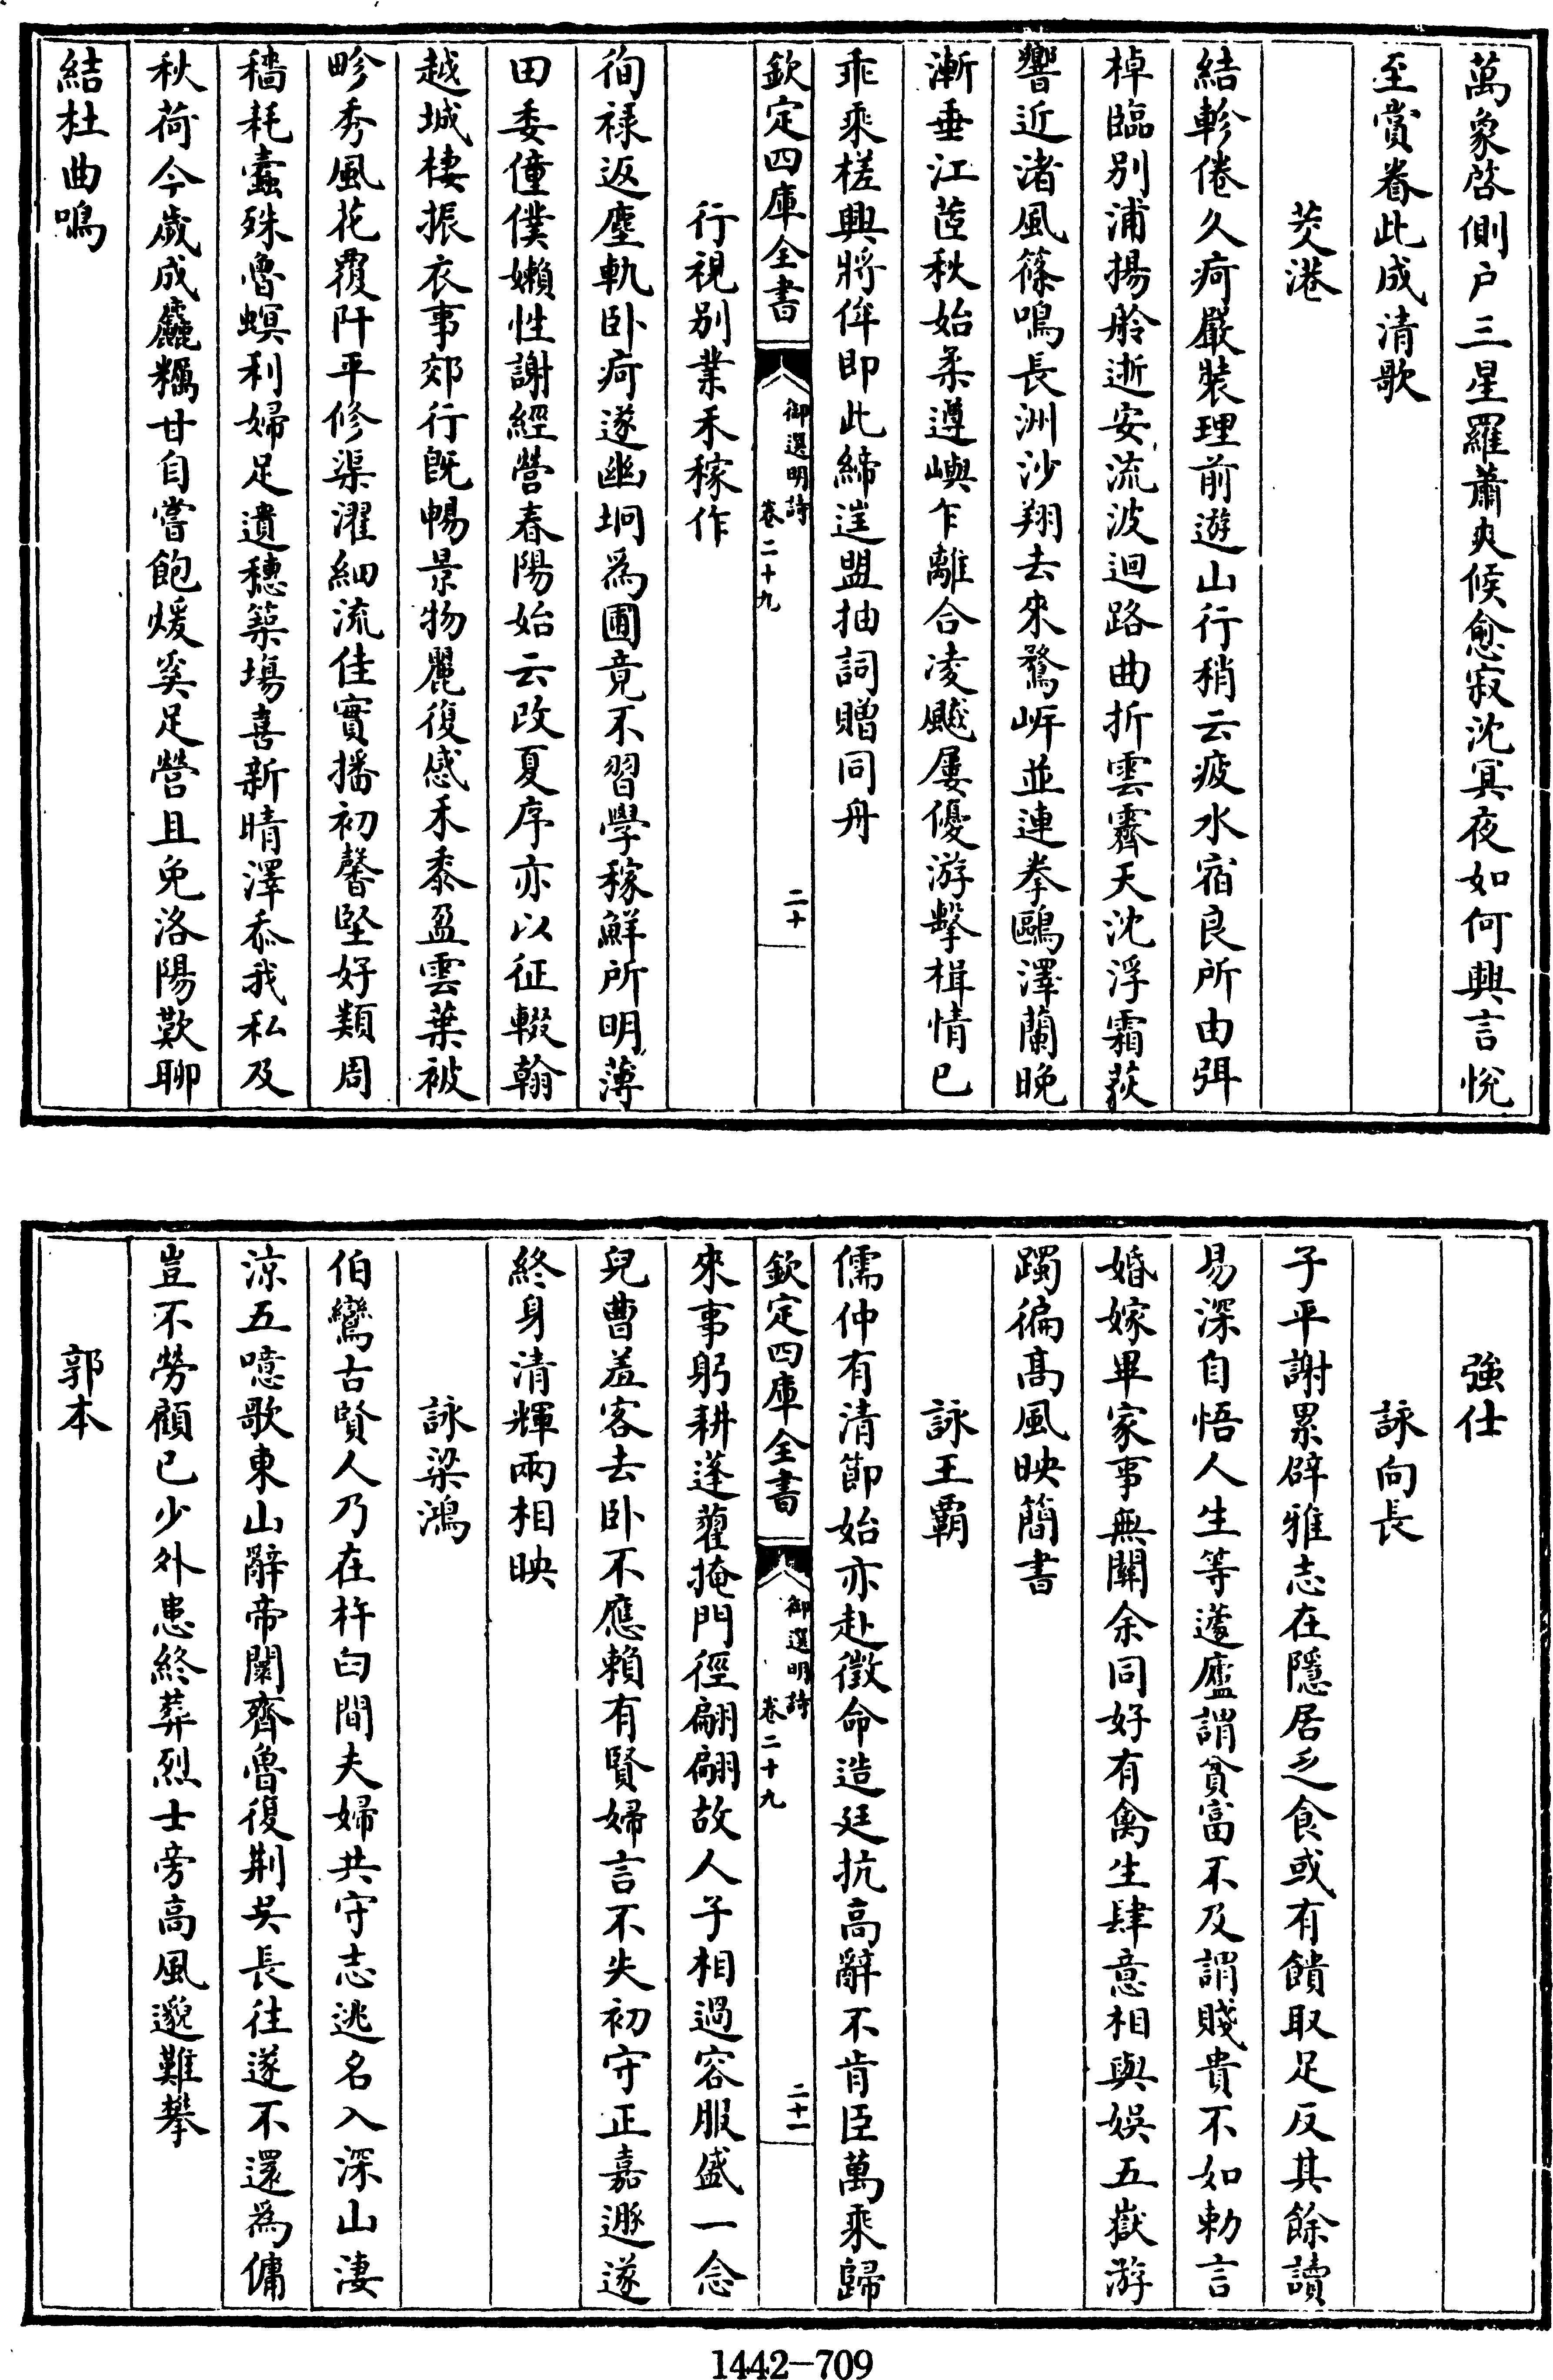 萬象啓側户三星羅蕭爽候愈寂沈冥夜如何興言悦
至賞眷此成清歌
茭港
結軫倦久疴嚴裝理前遊山行稍云疲水宿良所由弭
棹臨别浦揚舲逝安流波迴路曲折雲霽天沈浮霜荻
響近渚風篠鳴長洲沙翔去來鶩㟁並連拳鷗澤蘭晚
漸垂江茝秋始柔遵嶼乍離合凌飈屢優游擊楫情已
乖乘槎興將侔即此締逰盟抽詞贈同舟
欽定四庫全書
御選明詩
卷二十九
二十
行視别業禾稼作
徇禄返塵軌卧疴遂幽坰爲圃竟不習學稼鮮所明薄
田委僮僕嬾性謝經營春陽始云改夏序亦以征輟翰
越城棲振衣事郊行既暢景物麗復感禾黍盈雲葉被
畛秀風花覆阡平修渠濯細流佳實播初馨堅好類周
穡耗蠹殊魯螟利婦足遺穗築塲喜新晴澤忝我私及
秋荷今歲成麤糲甘自嘗飽煖奚足營且免洛陽歎聊
結杜曲鳴
強仕
詠向長
子平謝累辟雅志在隱居乏食或有饋取足反其餘讀
易深自悟人生等蘧廬謂貧富不及謂賤貴不如勅言
婚嫁畢家事無關余同好有禽生肆意相與娱五嶽游
躅徧髙風映簡書
詠王霸
儒仲有清節始亦赴徵命造廷抗高辭不肯臣萬乘歸
欽定四庫全書
御選明詩
卷二十九
二十一
來事躬耕蓬藋掩門徑翩翩故人子相過容服盛一念
兒曹羞客去卧不應賴有賢婦言不失初守正嘉遯遂
終身清輝兩相映
詠梁鴻
伯鸞古賢人乃在杵臼間夫婦共守志逃名入深山淒
涼五噫歌東山辭帝闕齊魯復荆吳長往遂不還爲傭
豈不勞顧已少外患終葬烈士旁高風邈難攀
郭本
1442-709